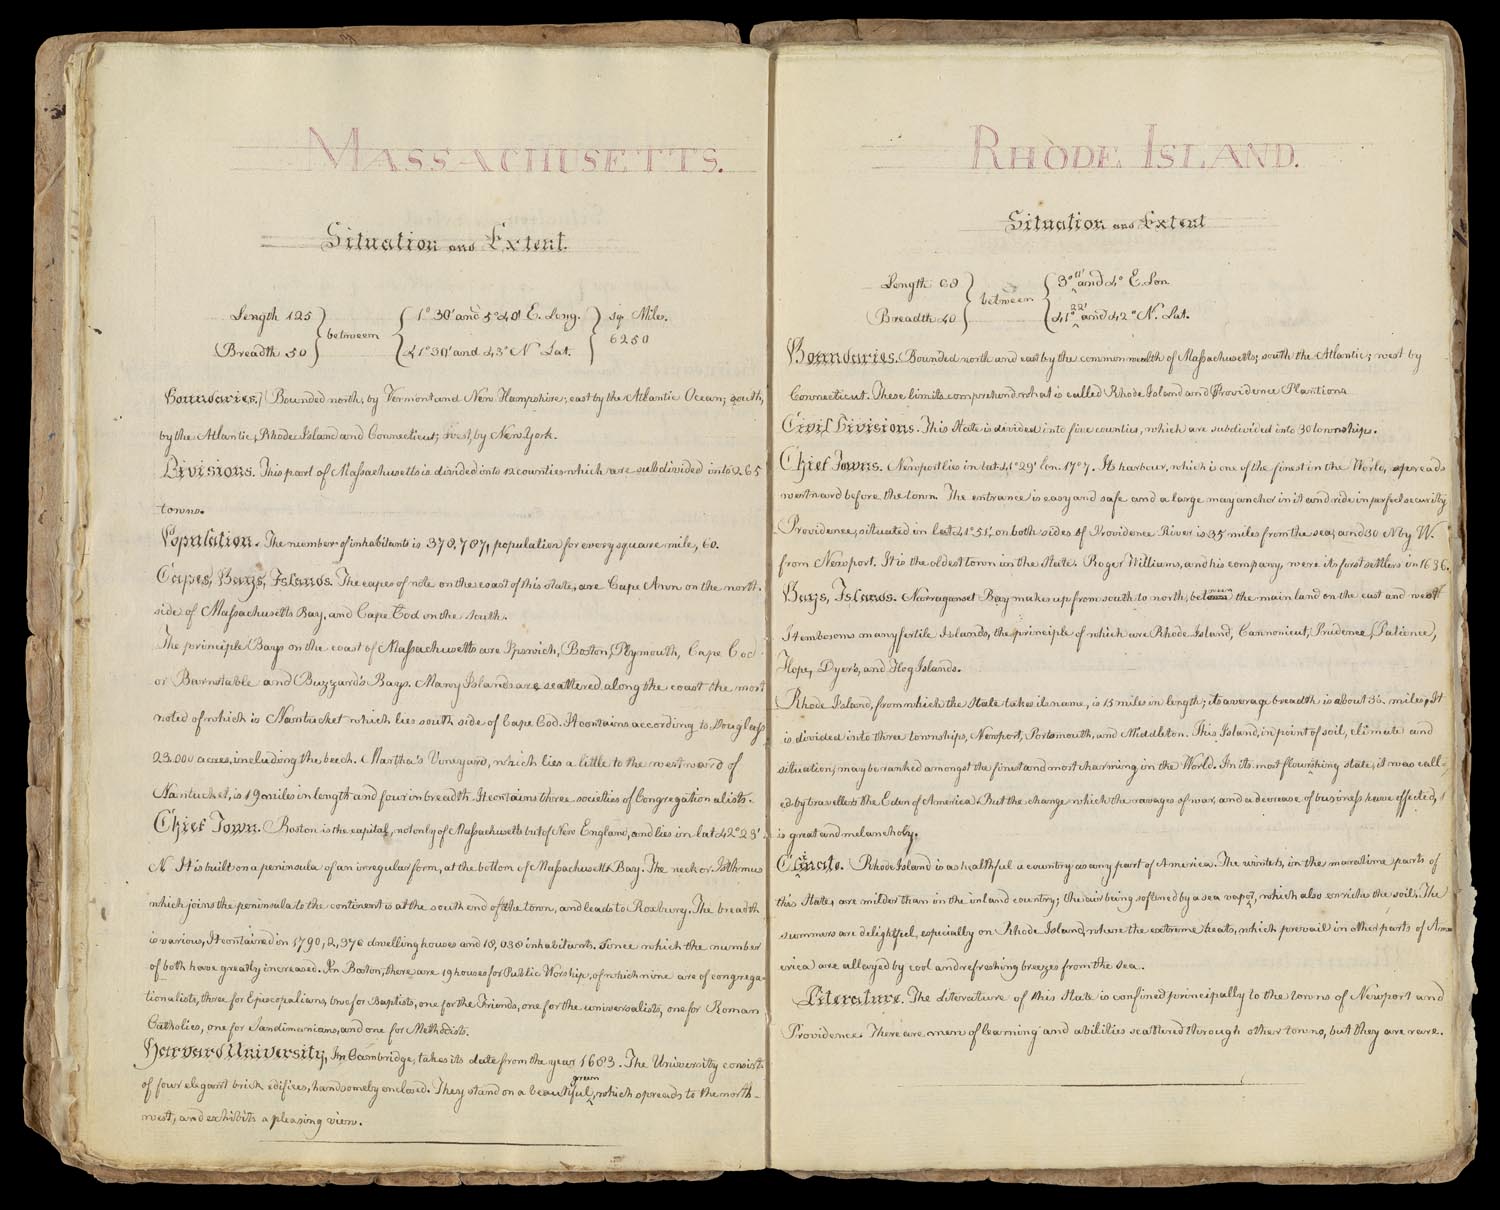 MASSACHUSETTS.
Situation and Extent.
Length 125 } between { 1° 30' and 5° 40' E. Long. } sq. Miles.
Breadth 50 } { 41° 30' and 43° N. Lat. } 6250
Boundaries.) Bounded north, by Vermont and New Hampshire; east by the Atlantic Ocean; south,
by the Atlantic, Rhode Island and Connecticut; west, by New York.
Divisions. This part of Massachusetts is divided into 12 counties which are subdivided into 265
towns.
Population. The number of inhabitants is 378,787, population for every square mile, 60.
Capes, Bays, Islands. The capes of note on the coast of this state, are Cape Ann on the north-
side of Massachusetts Bay, and Cape Cod on the south.
The principle Bays on the coast of Massachusetts are Ipswich, Boston, Plymouth, Cape Cod
or Barnstable and Buzzard's Bays. Many Islands are scattered along the coast the most
noted of which is Nantucket which lies south side of Cape Cod. It contains according to Douglass
23.000 acres, including the beech. Martha's Vineyard, which lies a little to the westward of
Nantucket, is 19 miles in length and four in breadth. It contains three societies of Congregationalists.
Chief Town. Boston is the capital, not only of Massachusetts but of New England, and lies in lat 42° 23'
N It is built on a peninsula of an irregular form, at the bottom of Massachusetts Bay. The neck or Isthmus
which joins the peninsula to the continent is at the south end of the town, and leads to Roxbury. The breadth
is various, It contained in 1790, 2,376 dwelling houses and 18,038 inhabitants. Since which the number
of both have greatly increased. In Boston, there are 19 houses for Public Worship, of which nine are of congrega-
tionalists, three for Episcopalians, two for Baptists, one for the Friends, one for the universalists, one for Roman
Catholics, one for Sandimanians, and one for Methodists.
Harvard University, In Cambridge, takes its date from the year 1683. The University consist
of four elegant brick edifices, handsomely enclosed. They stand on a beautiful green, which spreads to the north-
west, and exhibits a pleasing view.
RHODE ISLAND.
Situation and Extent
Length 68 } between { 3° 11' and 4° E. Lon.
Breadth 40 } { 41° 22' and 42° N. Lat.
Boundaries. Bounded north and east by the commonwealth of Massachusetts; south the Atlantic; west by
Connecticut. These limits comprehend what is called Rhode Island and Providence Plantions
Civil Divisions. This State is divided into five counties, which are subdivided into 30 townships.
Chief Towns. Newport lies in lat 41° 29' lon. 17° 7. Its harbour, which is one of the finest in the World, spreads
westward before the town. The entrance is easy and safe and a large may anchor in it and ride in perfect security
Providence, situated in lat 41° 51', on both sides of Providence River is 35 miles from the sea, and 30 N by W.
from Newport. It is the oldest town in the State. Roger Williams, and his company, were its first settlers in 1636.
Bays, Islands. Narraganset Bay makes up from south to north, between the main land on the east and west
It embosoms many fertile Islands, the principle of which are Rhode Island, Cannonicut, Prudence, Patience,
Hope, Dyer's, and Hog Islands.
Rhode Island, from which the State takes its name, is 15 miles in length; its average breadth is about 3½ miles, It
is divided into three townships, Newport, Portsmouth, and Middleton. This Island, in point of soil, climate and
situation, may be ranked amongst the finest and most charming in the World. In its most flourishing state, it was call-
ed by travellers the Eden of America. But the change which the ravages of war, and a decrease of business have effected,
is great and melancholy.
Climate. Rhode Island is as healthful a country as any part of America. The winters, in the maratime parts of
this State, are milder than in the inland country; the air being softened by a sea vapor, which also enriches the soil. The
summers are delightful, especially on Rhode Island, where the extreme heats, which prevail in other parts of Am
erica are allayed by cool and refreshing breezes from the sea.
Literature. The literature of this State is confined principally to the towns of Newport and
Providence. There are men of learning and abilities scattered through other towns, but they are rare.